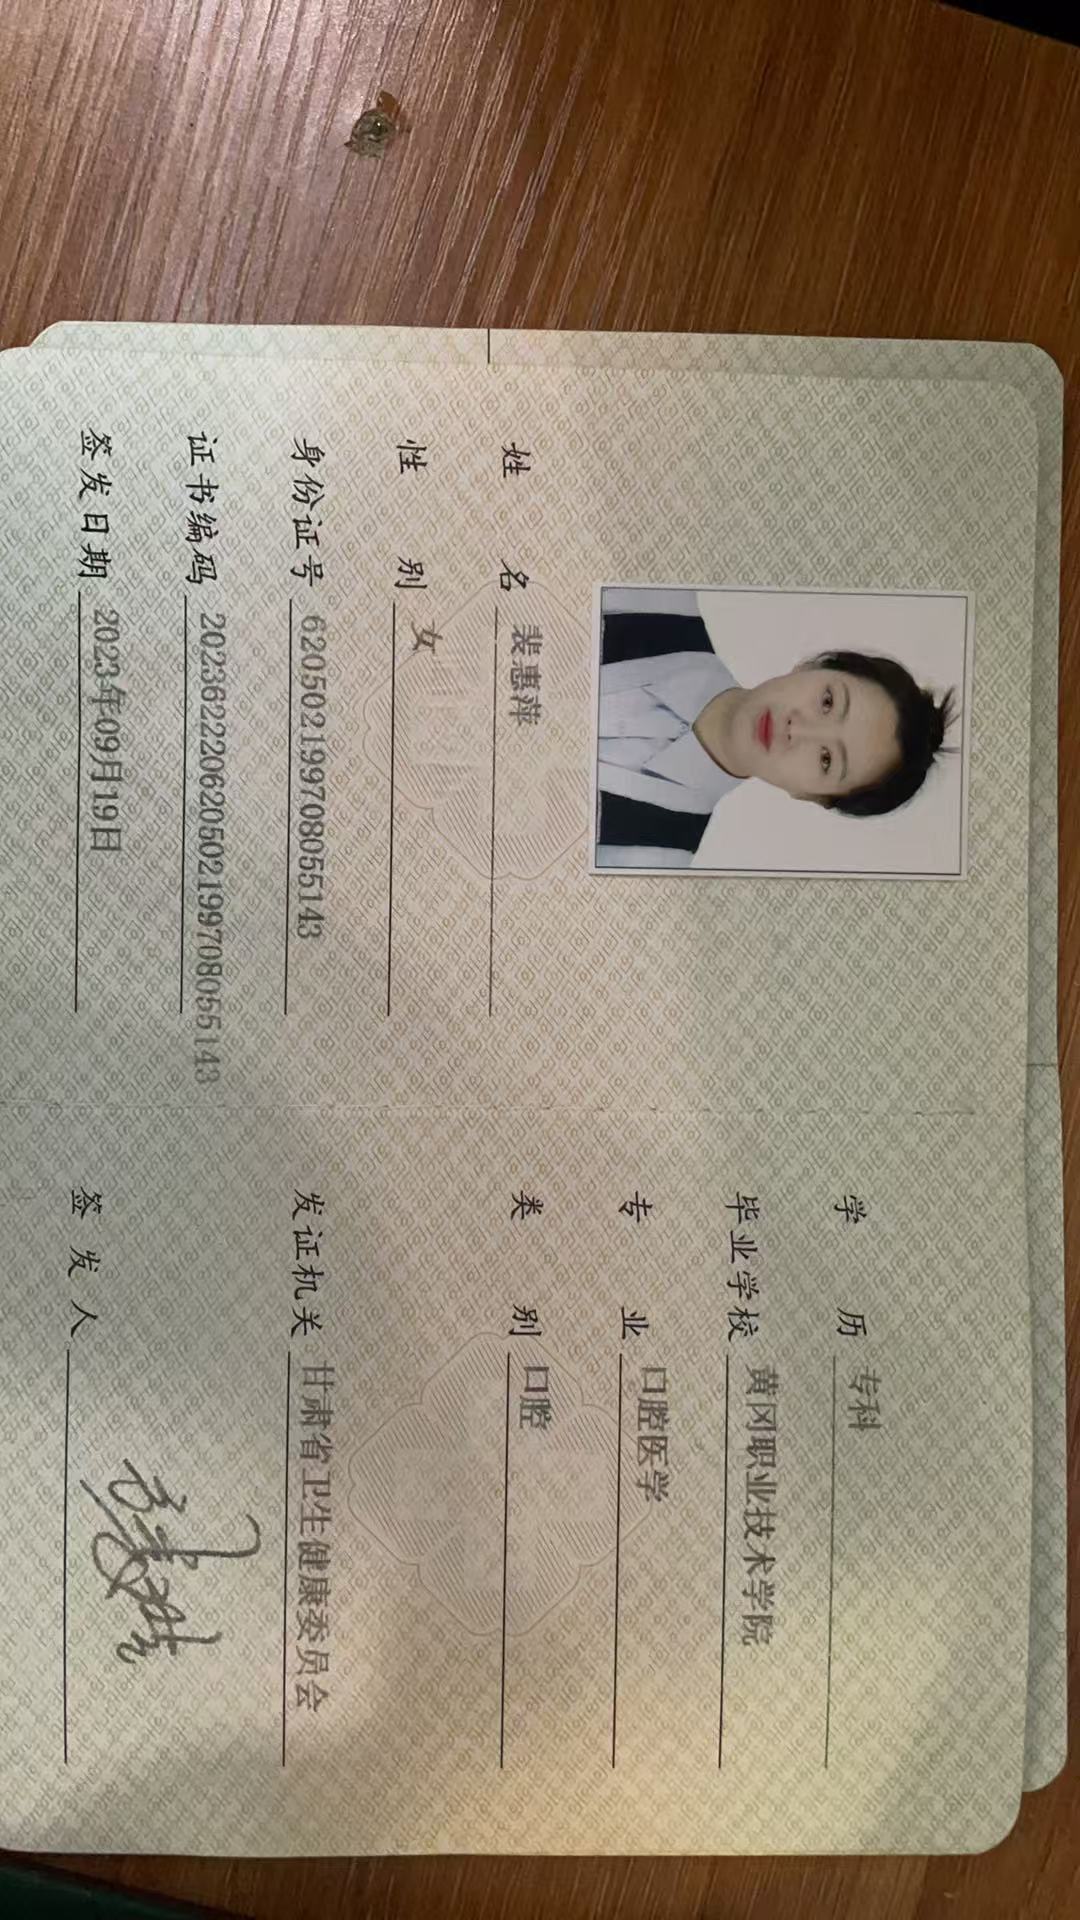 姓名 裴惠萍
性别 女
身份证号 620502199708055143
证书编码 202362220620502199708055143
签发日期 2023年09月19日
学历 专科
毕业学校 黄冈职业技术学院
专业 口腔医学
类别 口腔
发证机关 甘肃省卫生健康委员会
签发人